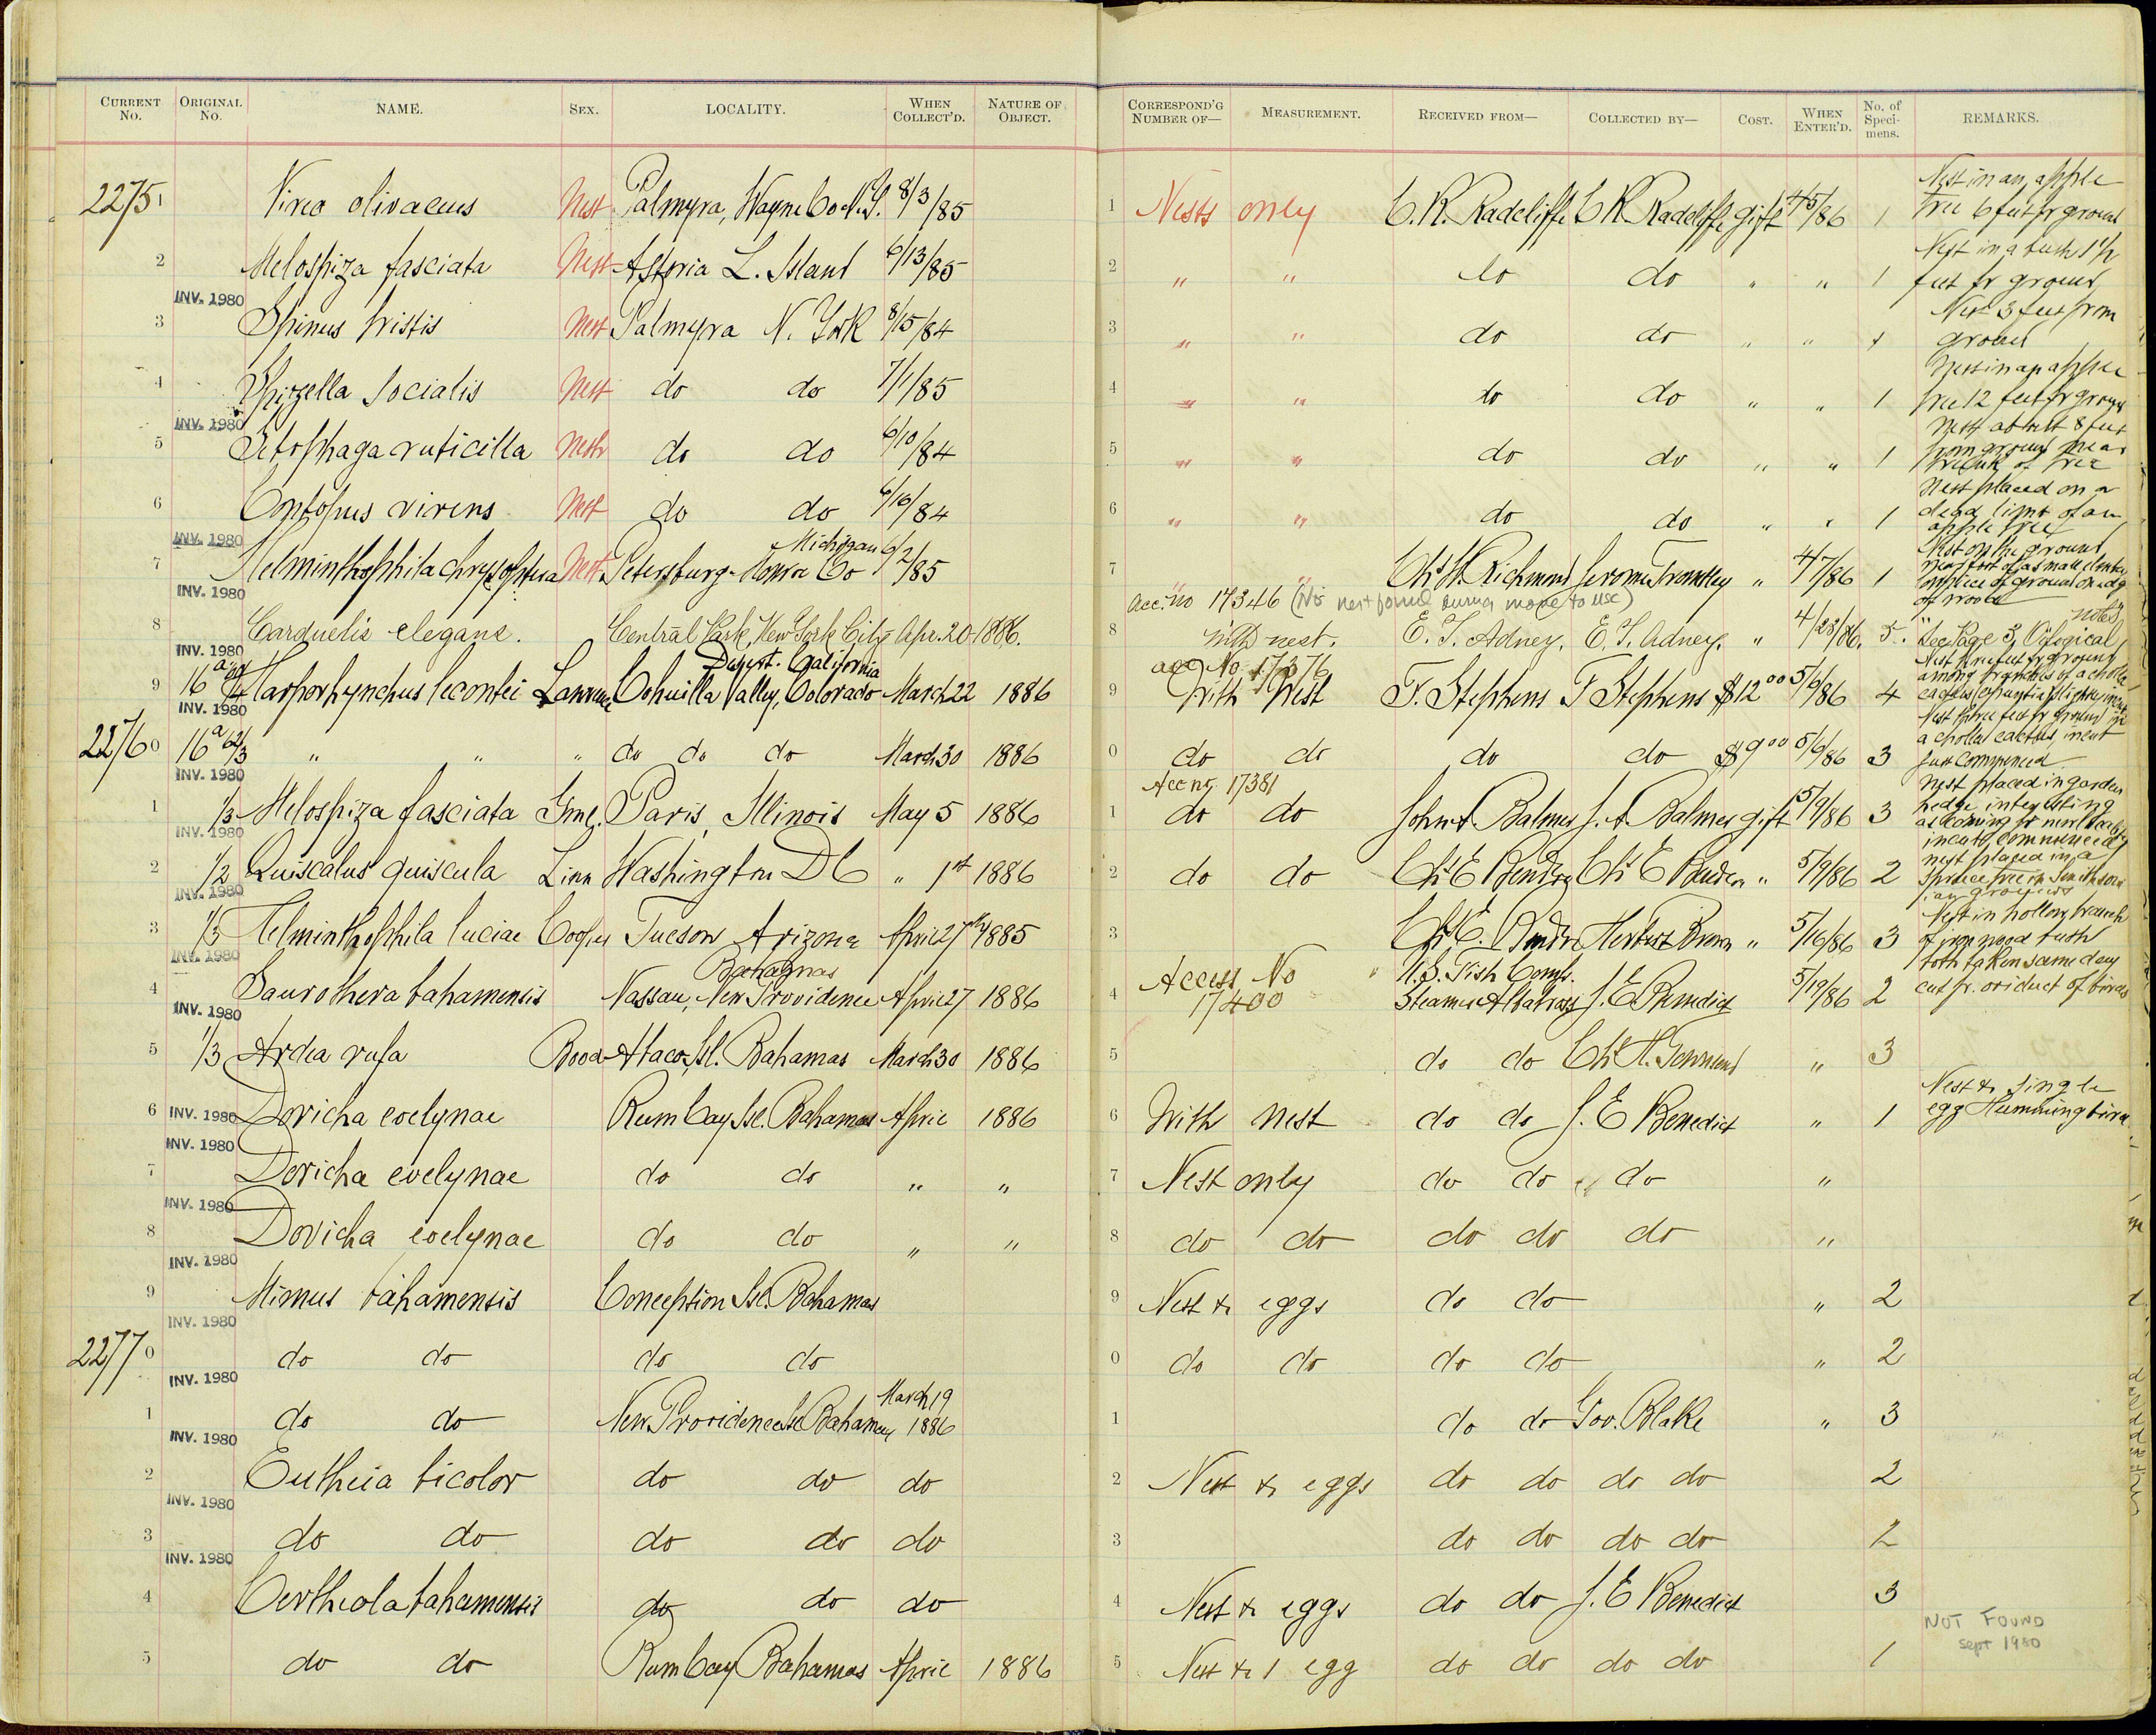 CURRENT No. ORIGINAL No. NAME. SEX. LOCALITY. WHEN COLLECT'D. NATURE OF OBJECT. CORRESPOND'G NUMBER OF— MEASUREMENT. RECEIVED FROM— COLLECTED BY— COST. WHEN ENTER'D. No. of Specimens. REMARKS.
22751 Vireo olivaceus Nest Palmyra, Wayne Co N.Y. 8/3/85 1 Nests only C.R. Radcliffe C R Radcliffe gift 4/5/86 1 Nest in an apple tree 6 feet fr ground
2 Melospiza fasciata Nest Astoria L. Island 6/13/85 2 " " do do " " 1 Nest in a bush 1 1/2 feet fr ground
INV. 1980
3 Spinus tristis Nest Palmyra N. York 8/15/84 3 " " do do " " 1 Nest 3 feet from ground
4 Spizella socialis Nest do do 7/1/85 4 " " do do " " 1 Nest in an apple tree 12 feet fr ground
INV. 1980
5 Setophaga ruticilla Nest do do 6/10/84 5 " " do do " " 1 Nest about 8 feet from ground near trunk of tree
6 Contopus virens Nest do do 6/16/84 6 " " do do " " 1 Nest placed on a dead limb of an apple tree
INV. 1980
7 Helminthophila chrysoptera Nest Petersburg Monroe Co Michigan 6/2/85 7 " " Chs W. Richmond Jerome Trombley " 4/7/86 1 Nest on the ground near foot of a small on piece of ground on edg of wood
INV. 1980
Acc. no 17346 (No nest found during move to MSC)
8 Carduelis elegans. Central Park, New York City Apr. 20 1886. 8 with nest. E. T. Adney. E. T. Adney. " 4/23/86. 5. See Page 3, Oölogical notes
INV. 1980
acc No 17376
9 16a Harporhynchus lecontei Lawrence Cohuilla Valley, Colorado Desert. California March 22 1886 9 With Nest F. Stephens F Stephens $12 00 5/6/86 4 Nest feet fr ground among branches of a cholla cactus
INV. 1980
22760 16a " " " do do do March 30 1886 0 do do do do $9 00 5/6/86 3 Nest three feet fr ground in a cholla cactus, incut just commenced
INV. 1980
Acc no. 17381
1 1/3 Melospiza fasciata Gmel. Paris, Illinois May 5 1886 1 do do John A. Balmer J. A. Balmer gift 5/9/86 3 Nest placed in garden hedge interesting as coming fr new locality incub. commenced
INV. 1980
2 1/2 Quiscalus quiscula Linn Washington DC " 1st 1886 2 do do Chs E Bendire Chs E Bendire " 5/9/86 2 nest placed in a spruce tree in Smithsonian grounds
INV. 1980
3 1/3 Helminthophila luciae Cooper Tucson Arizona April 27th 1885 3 Chs E. Bendire Herbert Brown " 5/16/86 3 Nest in hollow branch of iron wood bush
INV. 1980
4 Saurothera bahamensis Nassau, New Providence Bahamas April 27 1886 4 Access No 17400 U.S. Fish Coms. Steamer Albatross J. E. Benedict 5/19/86 2 both taken same day cut fr. oviduct of birds
INV. 1980
5 1/3 Ardea rufa Bood Abaco Isl. Bahamas March 30 1886 5 do do Chs H. Townsend " 3
6 INV. 1980 Doricha evelynae Rum Cay Isl. Bahamas April 1886 6 With nest do do J. E Benedict " 1 Nest & single egg Hummingbird
INV. 1980
7 Doricha evelynae do do " " 7 Nest only do do do "
INV. 1980
8 Doricha evelynae do do " " 8 do do do do do "
INV. 1980
9 Mimus bahamensis Conception Isl. Bahamas 9 Nest & eggs do do " 2
INV. 1980
22770 do do do do 0 do do do do " 2
INV. 1980
1 do do New Providence Isl Bahamas March 19 1886 1 do do Gov. Blake " 3
INV. 1980
2 Eutheia bicolor do do do 2 Nest & eggs do do do do 2
INV. 1980
3 do do do do do 3 do do do do 2
INV. 1980
4 Certhiola bahamensis do do do 4 Nest & eggs do do J. E Benedict 3
NOT FOUND Sept 1980
5 do do Rum Cay Bahamas April 1886 5 Nest & 1 egg do do do do 1